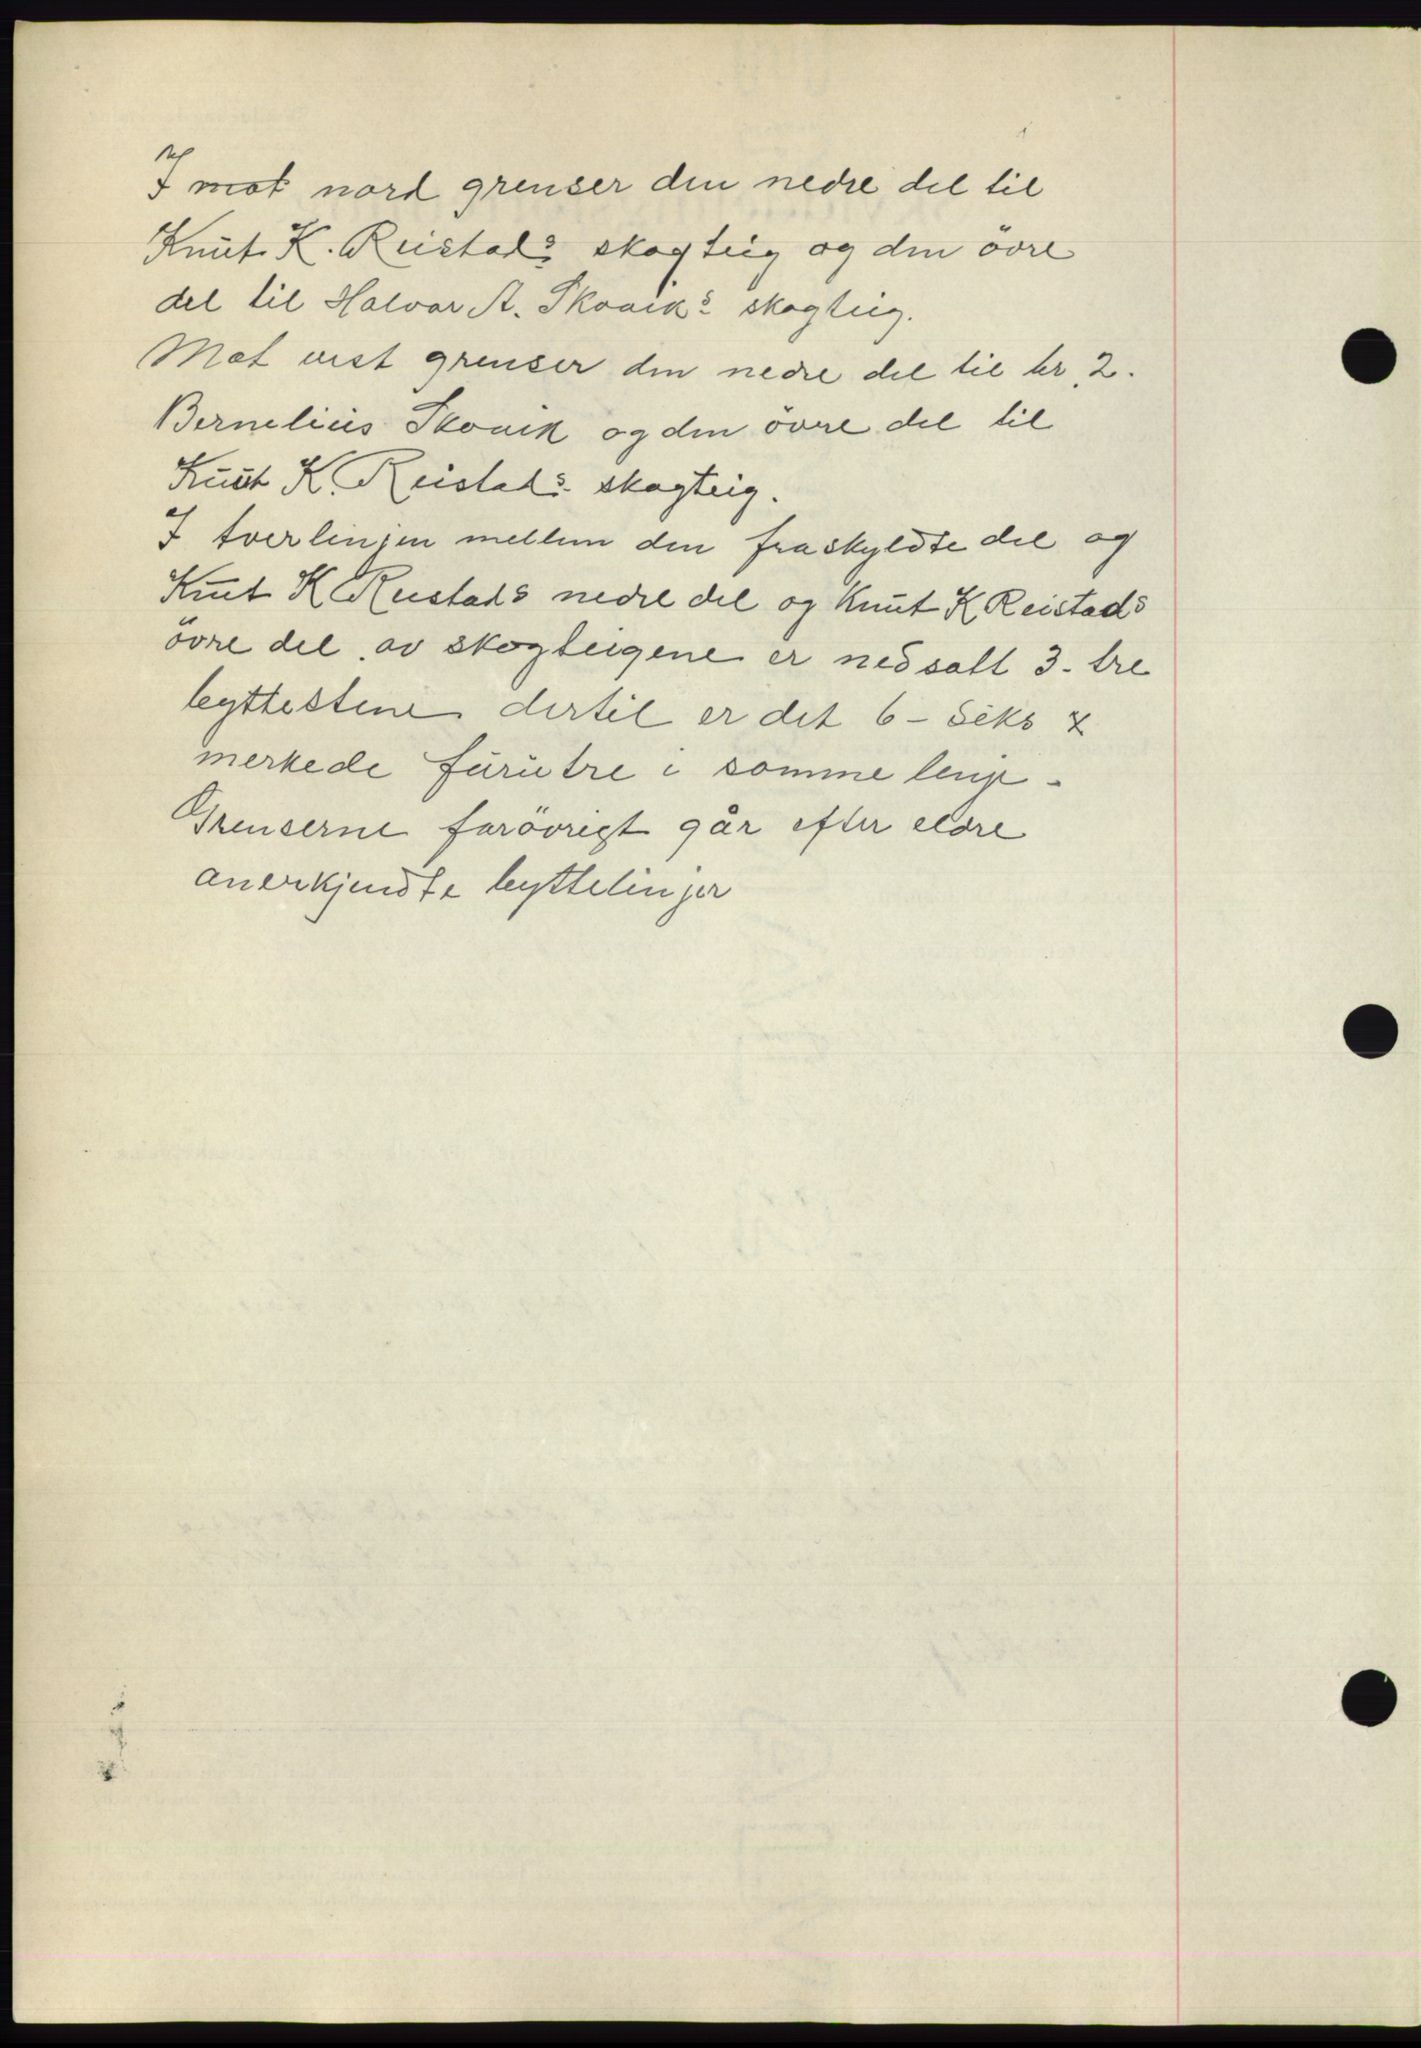 I mot nord grenser den nedre del til
Knut K. Reistads skogteig og den övre
del til Halvor A. Skovik's skogteig.
Mot vest grenser den nedre del til br. 2.
Bernelius Skovik og den övre del til
Knut K. Reistads skogteig.
I tverlinjen mellem den fraskyldte del og
Knut K Reistads nedre del og Knut K Reistads
övre del av skogteigene er nedsatt 3- tre
byttestene dertil er det 6 - seks x
merkede furutre i somme linje -
Grenserne forövrigt går efter eldre
anerkjendte byttelinjer